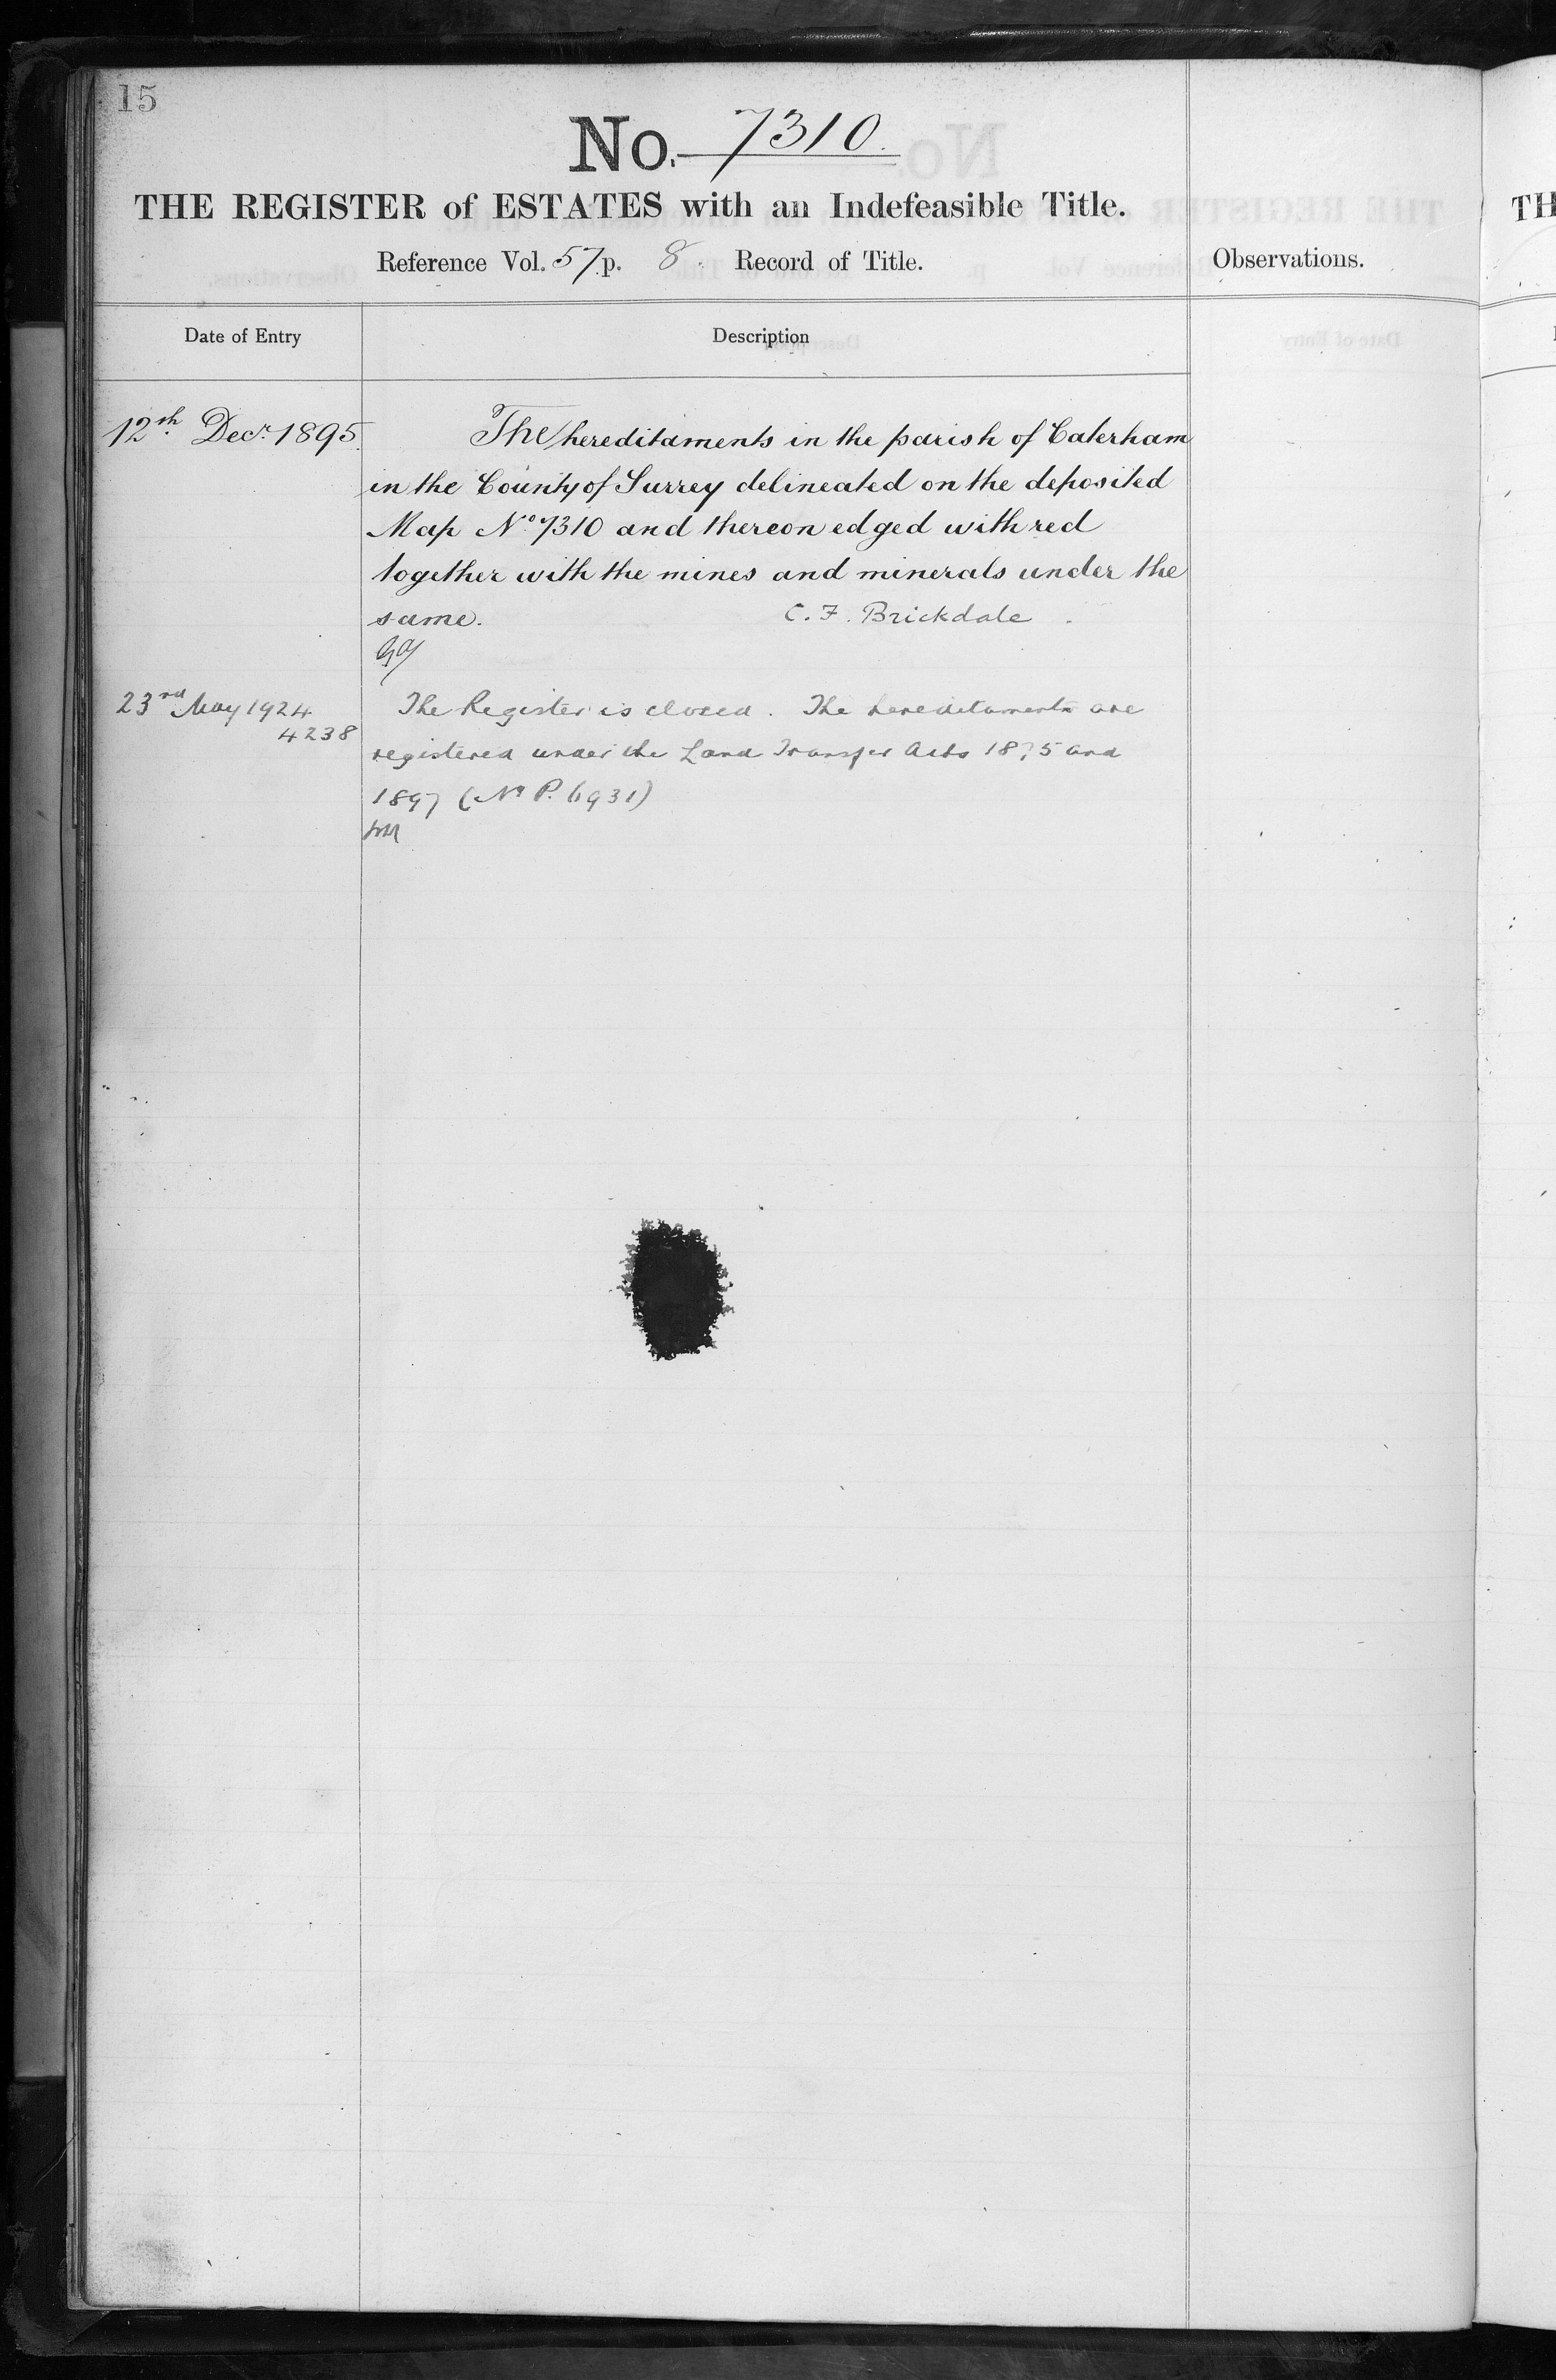 15
No. 7310.
THE REGISTER of ESTATES with an Indefeasible Title.
Reference Vol. 57 p. 8. Record of Title.
Observations.
Date of Entry
Description
12th Decr. 1895.
The hereditaments in the parish of Caterham
in the County of Surrey delineated on the deposited
Map No. 7310 and thereon edged with red
together with the mines and minerals under the
same. C. F. Brickdale.
23rd May 1924
4238
The Register is closed. The hereditaments are
registered under the Land Transfer Acts 1875 and
1897 (No P. 6931)
TH